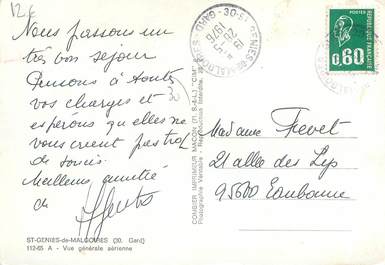 12€
Nous passons un
très bon séjour
Pensons à toutes
vos charges et
espérons qu'elles ne
vous crient pas trop
de soucis.
Meilleure amitié
de
ST-GENIES-de-MALGOIRES (30. Gard)
112-65 A - Vue générale aérienne
COMBIER IMPRIMEUR MACON (71. S.-&-L.) "CIM"
Photographie Véritable - Reproduction Interdite
ST GENIES DE MALGOIRES
GARD
15-30
1976
REPUBLIQUE FRANCAISE
0,60
Madame Frevet
21 allée des
95600 Eaubonne